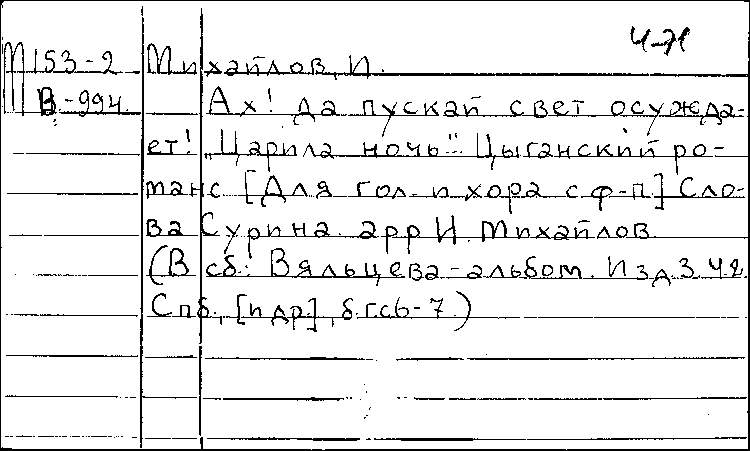 Ч-71
М 153-2 Михайлов, И.
В-994 Ах! да пускай свет осужда-
ет! „Царила ночь“. Цыганский ро-
манс [Для гол. и хора с ф-п.] Сло-
ва Сурина. арр И. Михайлов.
(В сб.: Вяльцева-альбом. Изд 3. Ч.2.
Спб., [и др.], б.г. с 6-7.)